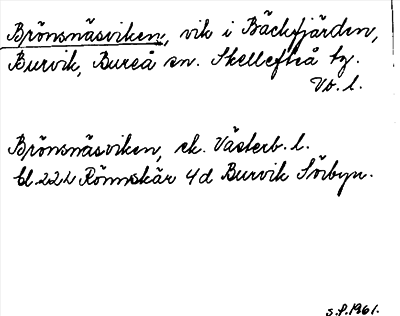 Brönsnäsviken, vik i Bäckfjärden,
Burvik, Bureå sn. Skellefteå tg.
Vb. l.
Brönsnäsviken, ek. Västerb. l.
bl. 22 L Rönnskär 4d Burvik Sörbyn.
S.S. 1961.